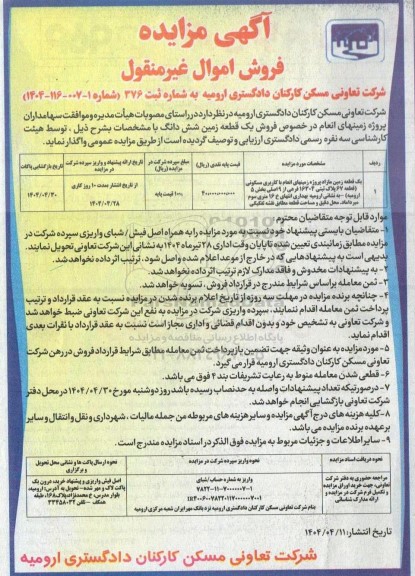 آگهی مزایده
فروش اموال غیرمنقول
شرکت تعاونی مسکن کارکنان دادگستری ارومیه به شماره ثبت ۳۷۶ (شماره ۱-۰۰۷-۱۱۶-۱۴۰۴)
شرکت تعاونی مسکن کارکنان دادگستری ارومیه در نظر دارد در راستای مصوبات هیأت مدیره و موافقت سهامداران
پروژه زمینهای انعام در خصوص فروش یک قطعه زمین شش دانگ با مشخصات بشرح ذیل، توسط هیئت
کارشناسی سه نفره رسمی دادگستری ارزیابی و توصیف گردیده است از طریق مزایده عمومی واگذار نماید.
ردیف
مشخصات مورد مزایده
قیمت پایه نقدی (ریال)
مبلغ سپرده شرکت در مزایده (ریال)
تاریخ ارائه پیشنهاد و واریز سپرده شرکت در مزایده
تاریخ بازگشایی پاکات
۱
یک قطعه زمین مازاد پروژه زمینهای انعام با کاربری مسکونی
از تاریخ انتشار بمدت ۱۰ روز کاری
۱۴۰۴/۰۴/۲۸
۱۴۰۴/۰۴/۳۰
موارد قابل توجه متقاضیان محترم
۱- متقاضیان بایستی پیشنهاد خود نسبت به مورد مزایده را به همراه اصل فیش / شبای واریزی سپرده شرکت در
مزایده مطابق زمانبندی تعیین شده تا پایان وقت اداری ۲۸ تیرماه ۱۴۰۴ به نشانی این شرکت تعاونی تحویل نمایند.
بدیهی است به پیشنهادهایی که در خارج از موعد اعلام شده واصل شود، ترتیب اثر داده نخواهد شد.
۲- به پیشنهادات مخدوش و فاقد مدارک لازم ترتیب اثر داده نخواهد شد.
۳- ثمن معامله براساس شرایط مندرج در قرارداد فروش، تسویه خواهد شد.
۴- چنانچه برنده مزایده در مهلت سه روزه از تاریخ اعلام برنده شدن در مزایده نسبت به عقد قرارداد و ترتیب
پرداخت ثمن معامله اقدام ننمایند، سپرده واریزی شرکت در مزایده به نفع این شرکت تعاونی ضبط خواهد شد
و شرکت تعاونی به تشخیص خود و بدون اقدام قضائی و اداری مجاز است نسبت به عقد قرارداد با نفرات بعدی
اقدام نماید.
۵- مورد مزایده به عنوان وثیقه جهت تضمین بازپرداخت ثمن معامله مطابق شرایط قرارداد فروش در رهن شرکت
تعاونی مسکن کارکنان دادگستری ارومیه قرار می گیرد.
۶- قطعی شدن معامله منوط به رعایت تشریفات بند ۴ فوق می باشد.
۷- درصورتیکه تعداد پیشنهادات واصله به حدنصاب رسیده باشد روز دوشنبه مورخ ۱۴۰۴/۰۴/۳۰ در محل دفتر
شرکت تعاونی بازگشایی انجام خواهد شد.
۸- کلیه هزینه های درج آگهی مزایده و سایر هزینه های مربوطه من جمله مالیات، شهرداری و نقل و انتقال و سایر
برعهده برنده مزایده می باشد.
۹- سایر اطلاعات و جزئیات مربوط به مزایده فوق الذکر در اسناد مزایده مندرج است.
نحوه دریافت اسناد مزایده
نحوه واریز سپرده شرکت در مزایده
نحوه ارسال پاکت ها و نشانی محل تحویل و برگزاری
مراجعه حضوری به دفتر شرکت تعاونی، جهت خرید اوراق مزایده و تکمیل فرم شرکت در مزایده و ارائه مدارک شناسائی
واریز به شماره حساب/شبای
بنام شرکت تعاونی مسکن کارکنان دادگستری ارومیه نزد بانک مهر ایران شعبه مرکزی ارومیه
تاریخ انتشار: ۱۴۰۴/۰۴/۱۱
شرکت تعاونی مسکن کارکنان دادگستری ارومیه